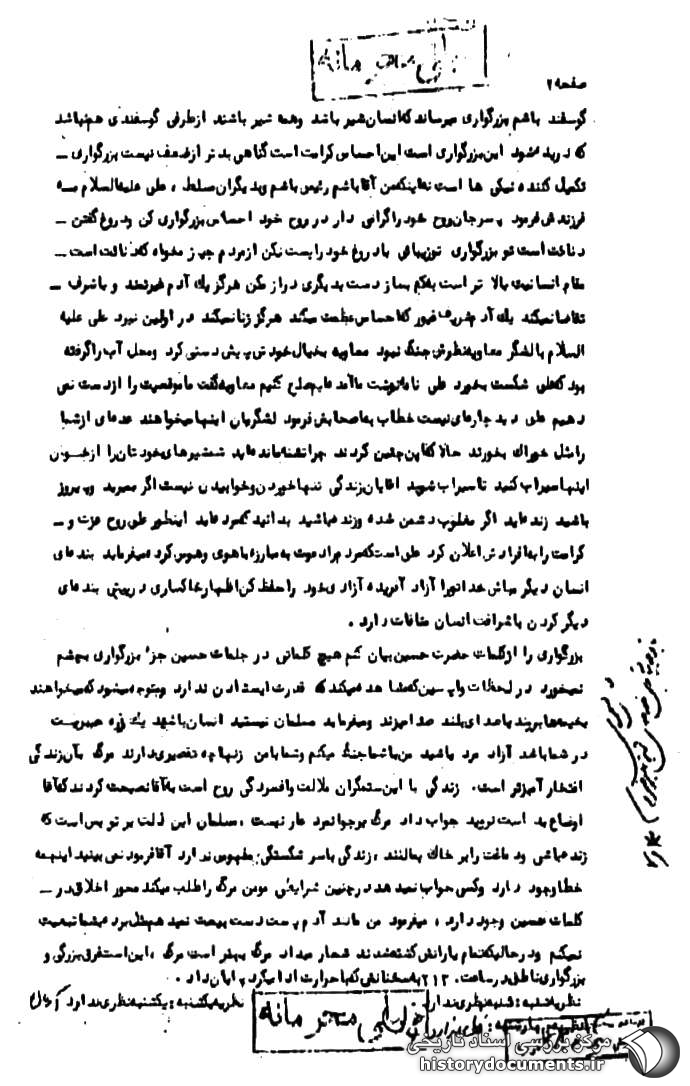 خیلی محرمانه
صفحه ۲
گوسفند باشم بزرگواری میرساند که انسان شیر باشد و همه شیر باشند از طرفی گوسفندی هم نباشد
که دریده شود این بزرگواری است این احساس کرامت است گناهی بدتر از ضعف نیست بزرگواری –
تکمیل کننده نیکی ها است نه اینکه من آقا باشم رئیس باشم و دیگران مسلط ، علی علیه السلام به
فرزندش فرمود پسرجان روح خود را گرامی دار در روح خود احساس بزرگواری کن و دروغ گفتن –
دنائت است تو بزرگواری تو زیبائی با دروغ خود را پست نکن از مردم چیز مخواه که دنائت است –
مقام انسانیت بالا تر است به کم بساز دست به دیگری دراز مکن هرگز یک آدم غیرتمند و با شرف –
تقاضا نمیکند یک آدم شریف غیور که احساس عظمت میکند هرگز زنا نمیکند در اولین نبرد علی علیه
السلام با لشگر معاویه نظرش جنگ نبود معاویه بخیال خودش پیش دستی کرد و محل آب را گرفته
بود که علی شکست بخورد علی نامه نوشت ما آمده ایم صلح کنیم معاویه گفت ما موقعیت را از دست نمی
دهیم علی دید چاره ای نیست خطاب به اصحابش فرمود لشگریان اینها میخواهند عده ای از شما
را مثل خوراک بخورند حالا که این چنین کردند چرا تشنه مانده اید شمشیرهای خودتان را از خون
اینها سیراب کنید تا سیراب شوید آقایان زندگی تنها خوردن و خوابیدن نیست اگر بمیرید و پیروز
باشید زنده اید اگر مغلوب دشمن شده و زنده باشید بدانید که مرده اید اینطور علی روح عزت و –
کرامت را به افرادش اعلان کرد علی است که مرد مرا دعوت به مبارزه با هوی و هوس کرد میفرماید بنده ای
انسان دیگر مباش خدا تو را آزاد آفریده آزادی خود را حفظ کن اظهار خاکساری در پیش بنده ای
دیگر کردن با شرافت انسان منافات دارد .
بزرگواری را از کلمات حضرت حسین بیان کنم هیچ کلماتی در جلمات حسین جزء بزرگواری بچشم
نمیخورد در لحظات واپسین که مشاهده میکند که قدرت ایستادن ندارد و متوجه میشود که میخواهند
بخیمه ها بروند با صدای بلند صدا میزند و میفرماید مسلمان نیستید انسان باشید یک ذره حریت
در شما باشد آزاد مرد باشید من با شما جنگ میکنم و شما با من زنها چه تقصیری دارند مرگ به آن زندگی
افتخار آمیزتر است . زندگی با این ستمگران ملالت و افسردگی روح است به آقا نصیحت کردند که آقا
اوضاع بد است نروید جواب داد مرگ بر جوانمرد عار نیست ، مسلمان این ذلت بر تو بس است که
زنده باشی و دماغت را بر خاک بمالند ، زندگی با سر شکستگی مفهوم ندارد آقا فرمود نمی بینید اینهمه
خطا وجود دارد و کسی جواب نمیدهد در چنین شرایطی مومن مرگ را طلب میکند محور اخلاق در –
کلمات حسین وجود دارد ، میفرمود من مانند آدم پست دست بیعت نمیدهم مثل برده بشما تبعیت
نمیکنم و در حالیکه تمام یارانش کشته شدند شعار میداد مرگ بهتر است مرگ ، این است فرق بزرگی و
بزرگواری ناطق در ساعت ۲۱۳۰ به سخنانش که با حرارت ادا میکرد پایان داد .
نظریه شنبه : شنبه نظری ندارد نظریه یکشنبه : یکشنبه نظری ندارد
خیلی محرمانه
مرکز بررسی اسناد تاریخی
historydocuments.ir